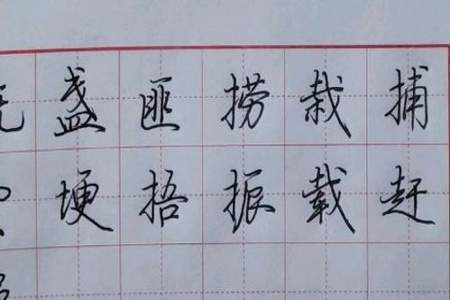 盏匪捞栽捕
埂捂振载赶